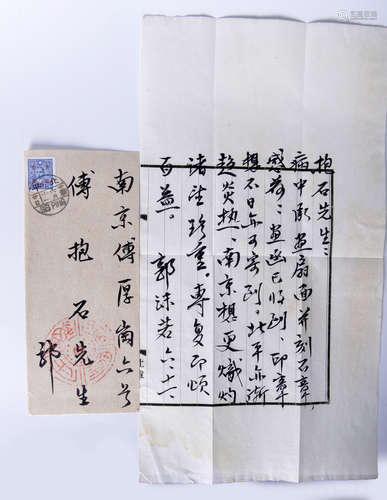 抱石先生：
病中承画扇面并刻石章，
感荷、画函已收到、印章
想不日亦可寄到。北平亦漸
趋炎热，南京想更熾灼
诸望珍重專复即頌
百益。 郭沫若 六、十一、
南京傅厚崗六号
傅抱石先生
郭